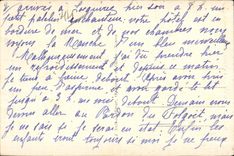 arrivés à hier soir à 7 h. un
petit patelin enchanteur. votre hôtel est en
bordure de mer et de nos chambres nous
voyons la Manche d'un bleu merveilleux
Malheureusement j'ai dû prendre
un refroidissement et depuis ce matin
je tiens à peine debout. Après avoir bu
un peu d'aspirine et avoir gardé le lit
jusqu'à 3 h. me voici debout. Demain nous
devons aller au Pardon du Folgoët, mais
je ne sais si je serai en état. Enfin les
enfants vont toujours si moi je ne peux